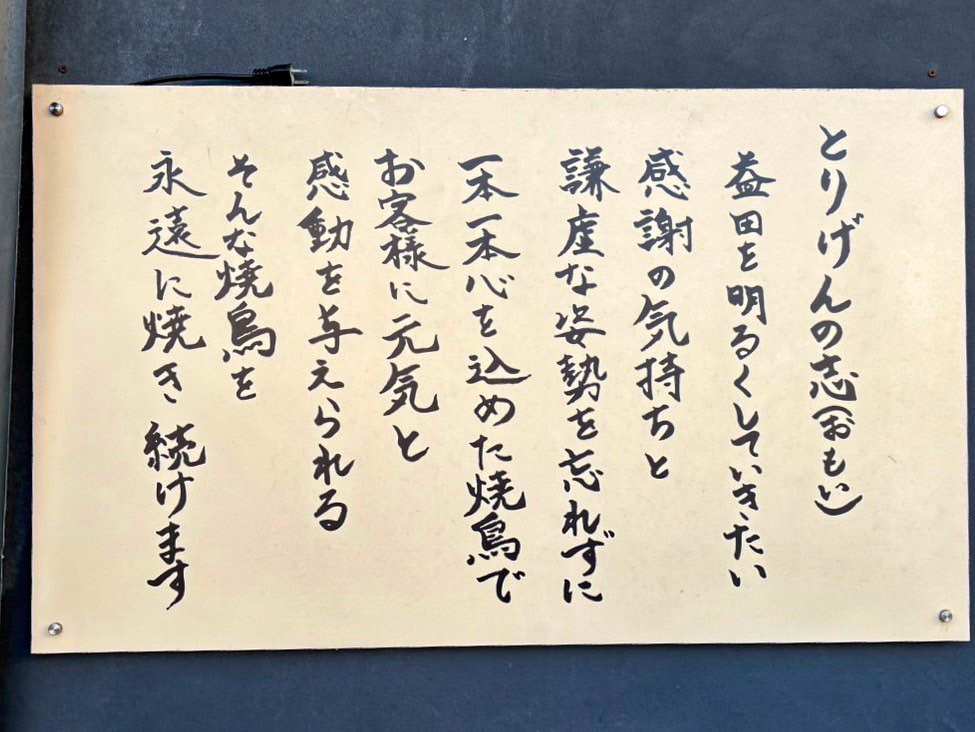 とりげんの志(おもい)
益田を明るくしていきたい
感謝の気持ちと
謙虚な姿勢を忘れずに
一本一本心を込めた焼鳥で
お客様に元気と
感動を与えられる
そんな焼鳥を
永遠に焼き続けます